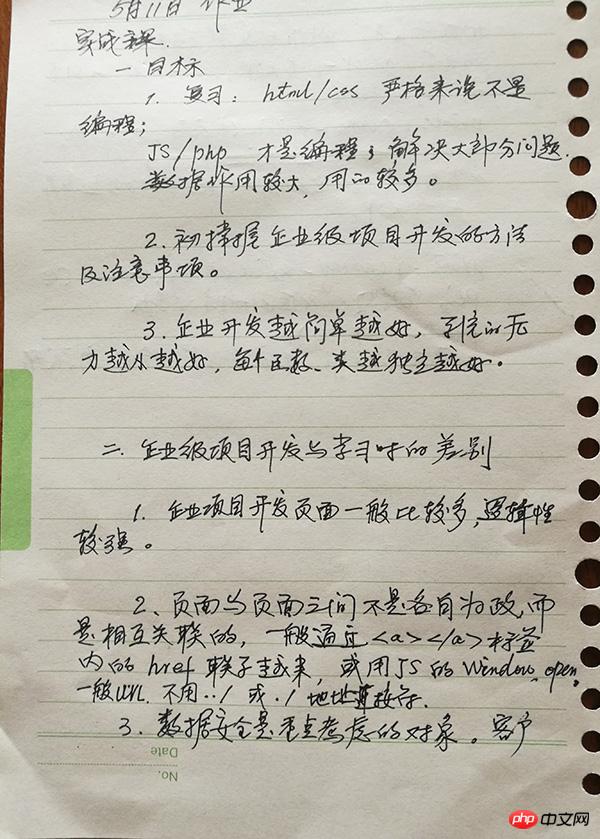 5月11日 作业
实战课.
一 目标
1. 复习: html/css 严格来说不是
编程;
JS/php 才是编程; 解决大部分问题.
数据作用较大, 用的较多。
2. 初掌握企业级项目开发的方法
及注意事项。
3. 企业开发越简单越好,
力越小越好, 每个函数、类越独立越好.
二. 企业级项目开发与学习时的差别
1. 企业项目开发页面一般比较多, 逻辑性
较强。
2、页面与页面之间不是各自为政,而
是相互关联的, 一般通过<a></a>标签
内的href联系起来, 或用JS的Window.open,
一般url 不用../ 或 ./ 地址
3. 数据安全是重点考虑的对象。客户
Date
No.
php 中文网